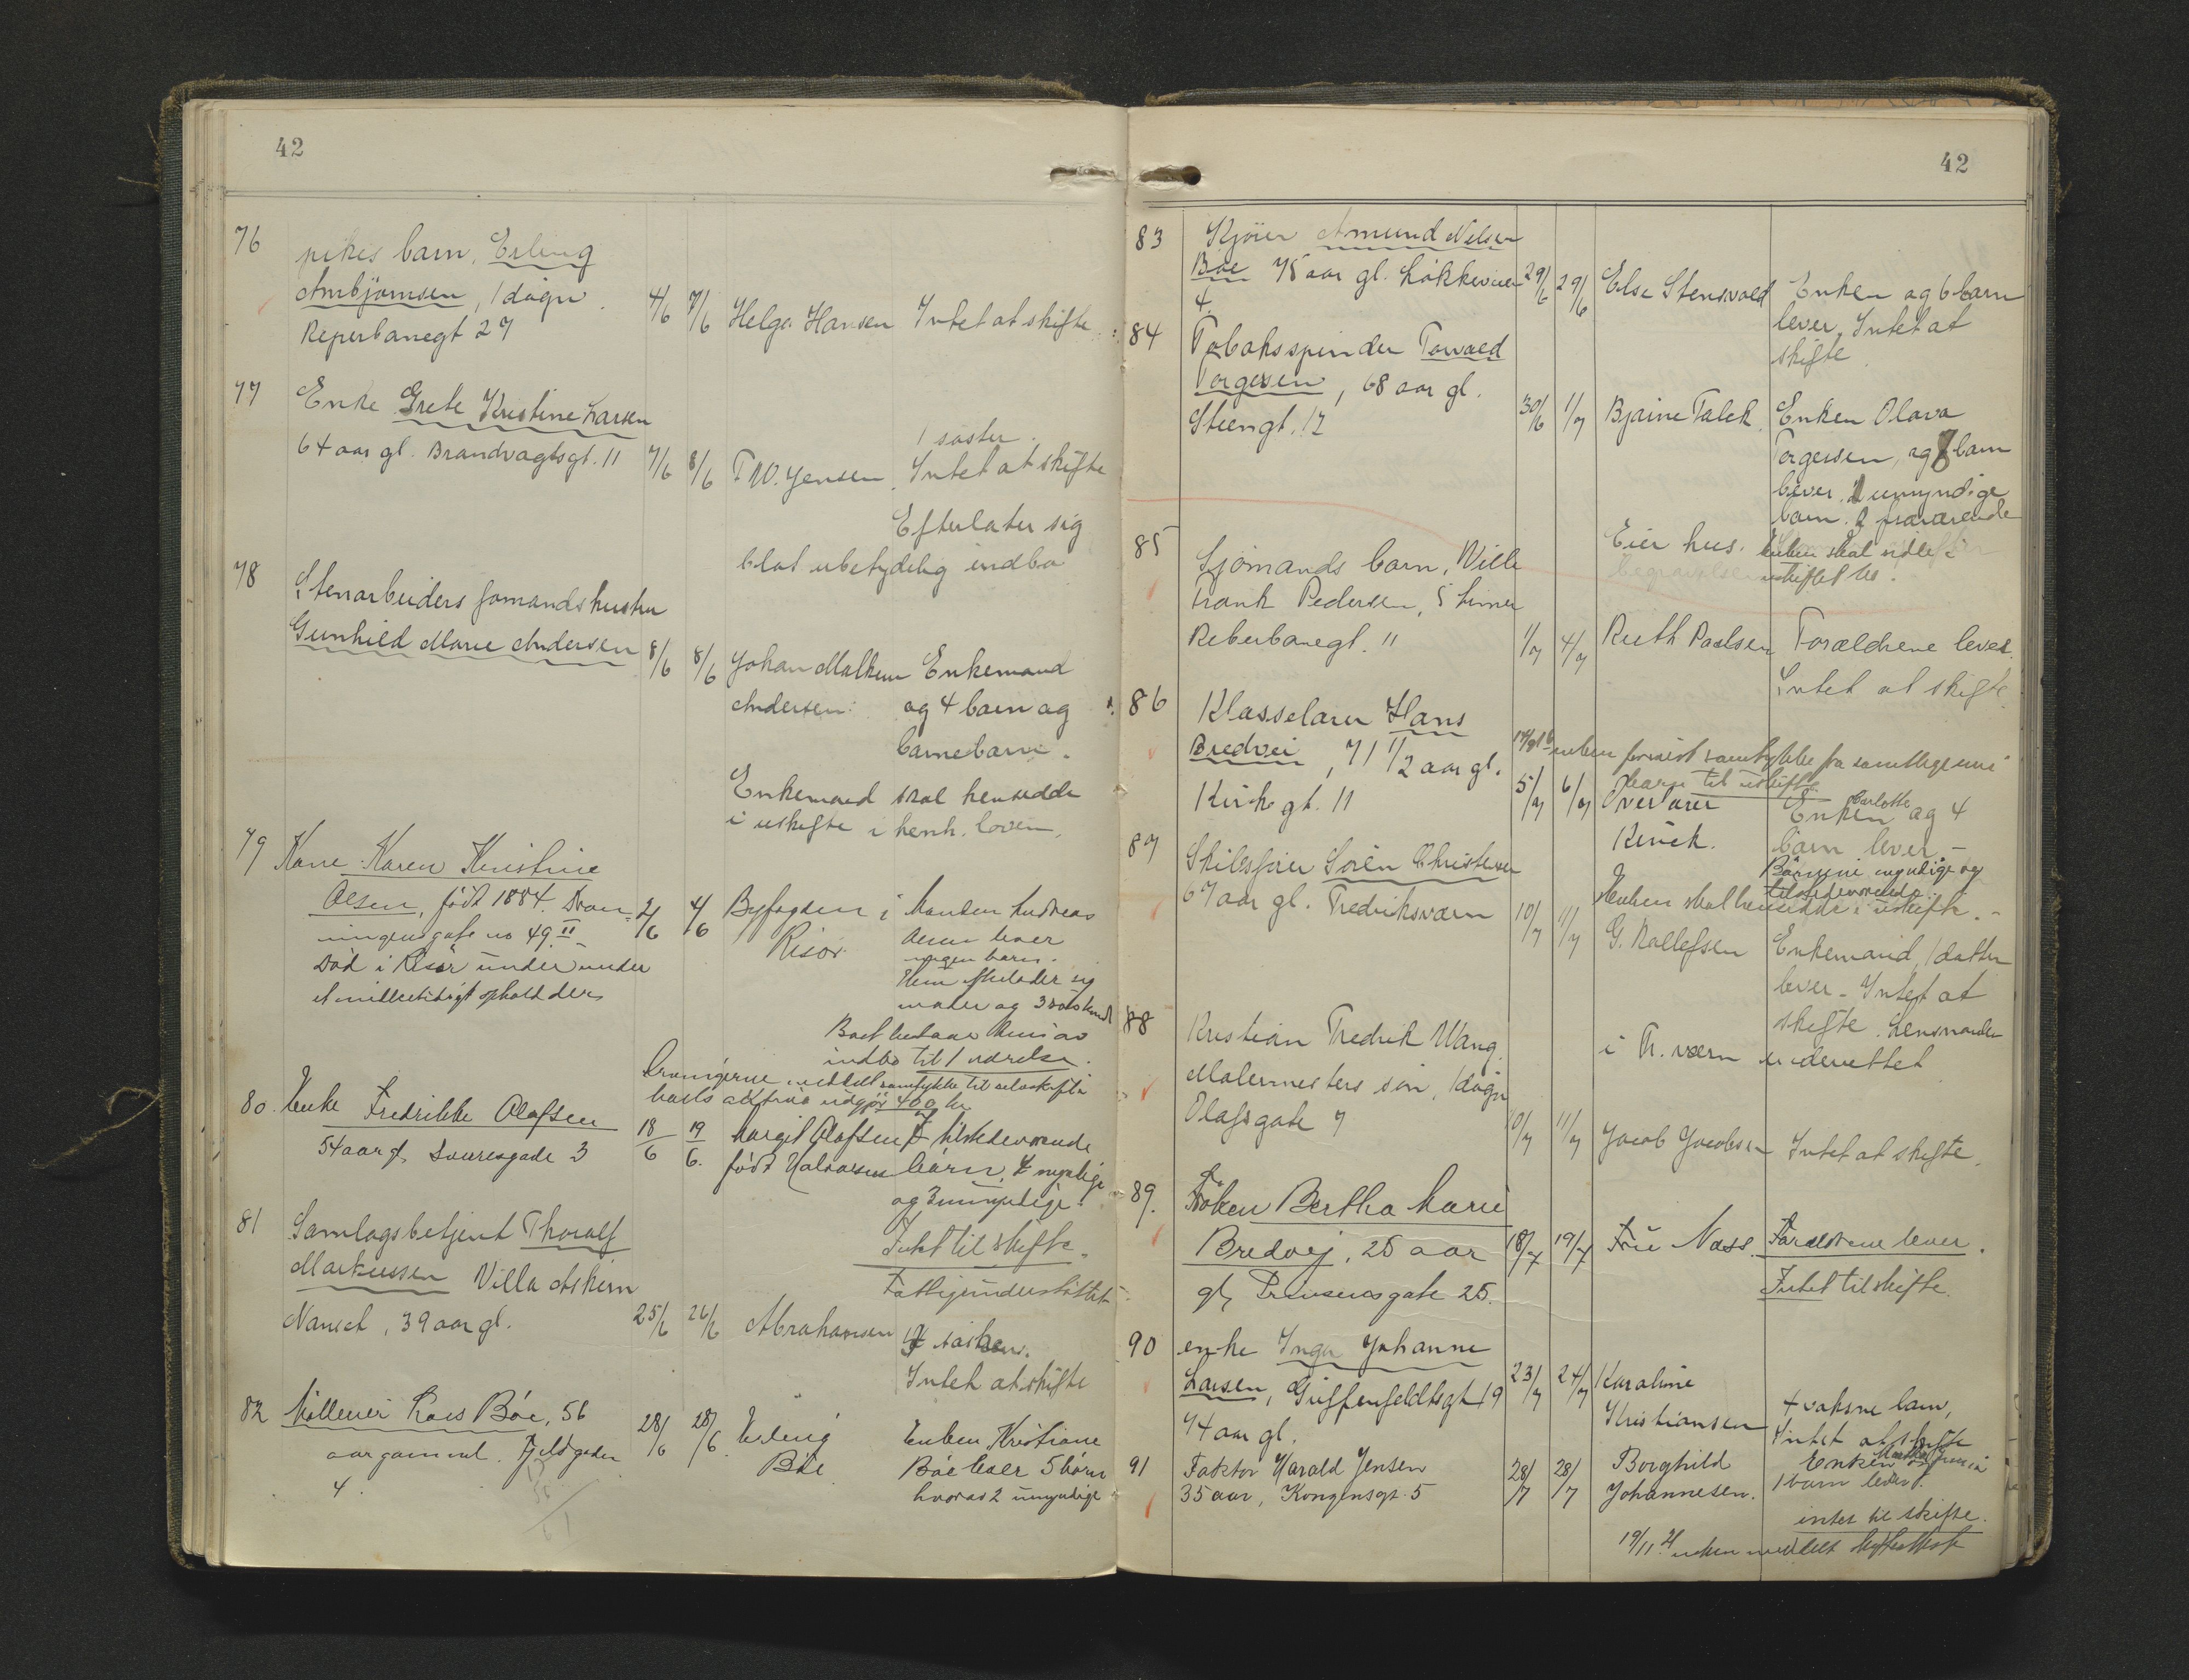 42
76
pikes barn, Erling
Arnbjørnsen, 1 døgn.
Reperbanegt 27
4/6 7/6 Helga Hansen Intet at skifte
77
Enke Grete Kristine Larsen
64 aar gl. Brandvagtsgt. 11
7/6 8/6 T W. Jensen.
1 søster.
Intet at skifte
Efterlater sig
blot ubetydelig indbo
78
Stenarbeiders hustru
Gunhild Marie Andersen
8/6 8/6 Johan
Andersen.
Enkemand
og 4 barn og
barnebarn.
Enkemand skal hensidde
i uskifte i henh. loven.
79
Kone Karen Kristine
Olsen, født 1884. Dron=
ningensgate no 49 II
Død i Risør under
et midlertidigt ophold der
2/6 4/6 Byfogden i
Risør
Manden Andreas
Olsen lever
ingen barn.
Hun efterlader sig
moder og 3 søskende
Boet bestaar kun av
indbo til 1 værelse.
Arvingerne meddelt samtykke til
boets aktiva udgjør 400 kr
80. Enke Fredrikke Olafsen
54 aar gl. 3
18/6 19/6. Margit Olafsen
født Halvorsen
7 tilstedeværende
børn, 4 myndige
og 3 umyndige.
Intet til skifte.
Fattigunderstøttet.
81
Samlagsbetjent Thoralf
Markussen Villa Askim
Nanset, 39 aar gl.
25/6 26/6 Abrahamsen
søsken.
Intet at skifte
82 Møller Lars Bøe, 56
aar gammel. Fjeldgaden
4.
28/6 28/6 Erling
Bøe
Enken Kristiane
Bøe lever 5 børn
hvorav 2 umyndige
42
83
Kjører Amund Nilsen
Bøe 75 aar gl. Løkkeveien
4.
29/6 29/6 Else Stensvold
Enken og 6 barn
lever. Intet at
skifte
84
Tobakspinder Torvald
Torgersen, 68 aar gl.
Steengt. 12
30/6 1/7 Bjarne Falck.
Enken Olava
Torgersen, og 8 barn
lever. 1 umyndige
barn. 2 fraværende
Eier hus. Enken skal sidde i
uskiftet bo.
85
Sjømands barn, Wille
Frank Pedersen, 5 timer
Reberbanegt. 11
1/7 4/7 Ruth Paulsen
Forældrene lever.
Intet at skifte.
86
Klasselærer Hans
Bredvei, 71 1/2 aar gl.
Kirkegt. 11
enken forevist samtykke fra samtlige
til uskifte
5/7 6/7 Overlærer
Kirick.
Enken Charlotte og 4
barn lever –
Børnene myndige og
tilstedeværende.
Enken skal hensidde i uskifte. –
87
Skibsfører Sørén Christensen
67 aar gl. Fredriksværn
10/7 11/7 G. Rollefsen
Enkemand, 1 datter
lever – Intet at
skifte. Lensmanden
i Fr. værn underrettet
88
Kristian Fredrik Wang.
Malermesters søn, 1 døgn
Olafsgate 7
10/7 11/7 Jacob Jacobsen
Intet at skifte.
89.
Frøken Bertha Marie
Bredvej, 25 aar
gl, Prinsensgate 25.
18/7 19/7 Frü Næss.
Forældrene lever.
Intet til skifte.
90
enke Inga Johanne
Larsen, Griffenfeldtsgt 19
74 aar gl.
23/7 24/7 Karoline
Kristiansen
4 voksne barn,
Intet at skifte
91
Faktor Harald Jensen
35 aar, Kongensgt. 5
28/7 28/7 Borghild
Johannesen.
Enken og
1 barn lever.
intet til skifte.
19/11 21 enken meddelt skifteattest